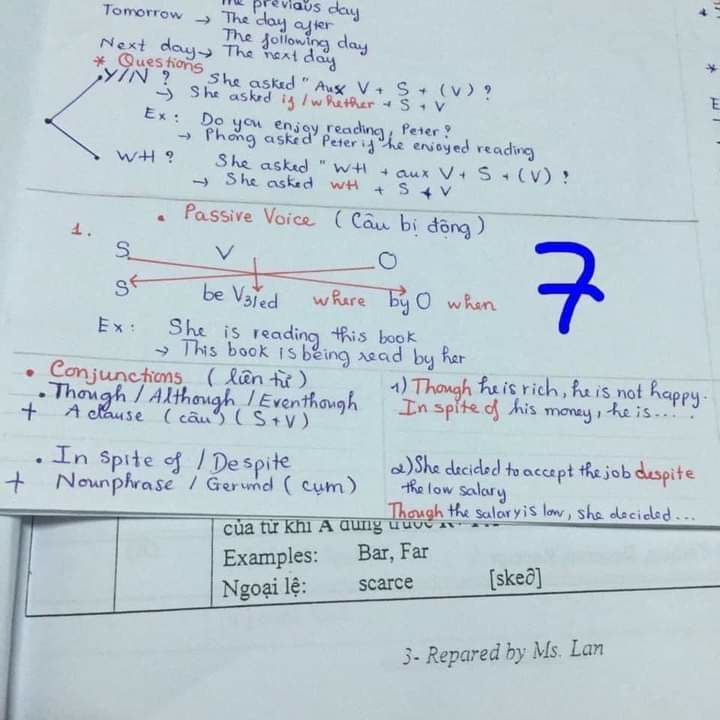 The previous day
Tomorrow → The day after
The following day
Next day → The next day
* Questions
Y/N ? She asked " Aux V + S + (V) ?
→ She asked if / whether + S + V
Ex : Do you enjoy reading, Peter ?
→ Phong asked Peter if he enjoyed reading
WH ? She asked " WH + aux V + S + (V) ?
→ She asked WH + S + V
• Passive Voice ( Câu bị động )
1.
S V O
S be V3/ed where by O when
7
Ex : She is reading this book
→ This book is being read by her
• Conjunctions ( liên từ )
• Though / Although / Eventhough
+ A clause ( câu ) ( S + V )
• In spite of / Despite
+ Nounphrase / Gerund ( cụm )
1) Though he is rich, he is not happy.
In spite of his money, he is.....
2) She decided to accept the job despite
the low salary
Though the salary is low, she decided...
của từ khi A đứng trước
Examples: Bar, Far
Ngoại lệ: scarce [skeə]
3- Repared by Ms. Lan